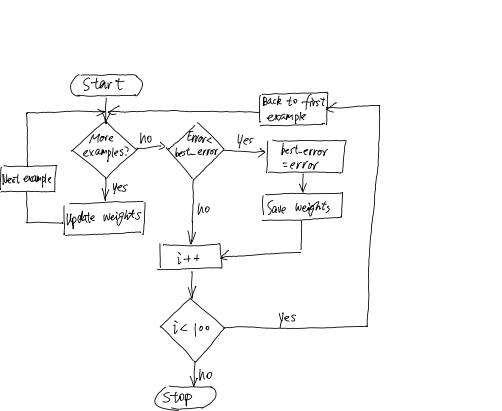 Start
Back to first
example
More
examples?
no
Error<
best_error
yes
best_error
=error
Next example
yes
Update weights
no
Save weights
i++
i<100
yes
no
Stop